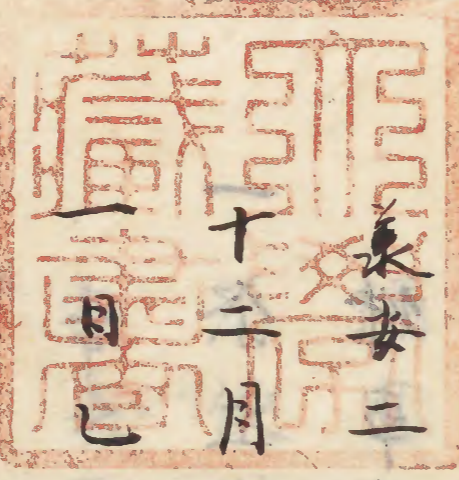 承安二
十二月
一日乙
藏書